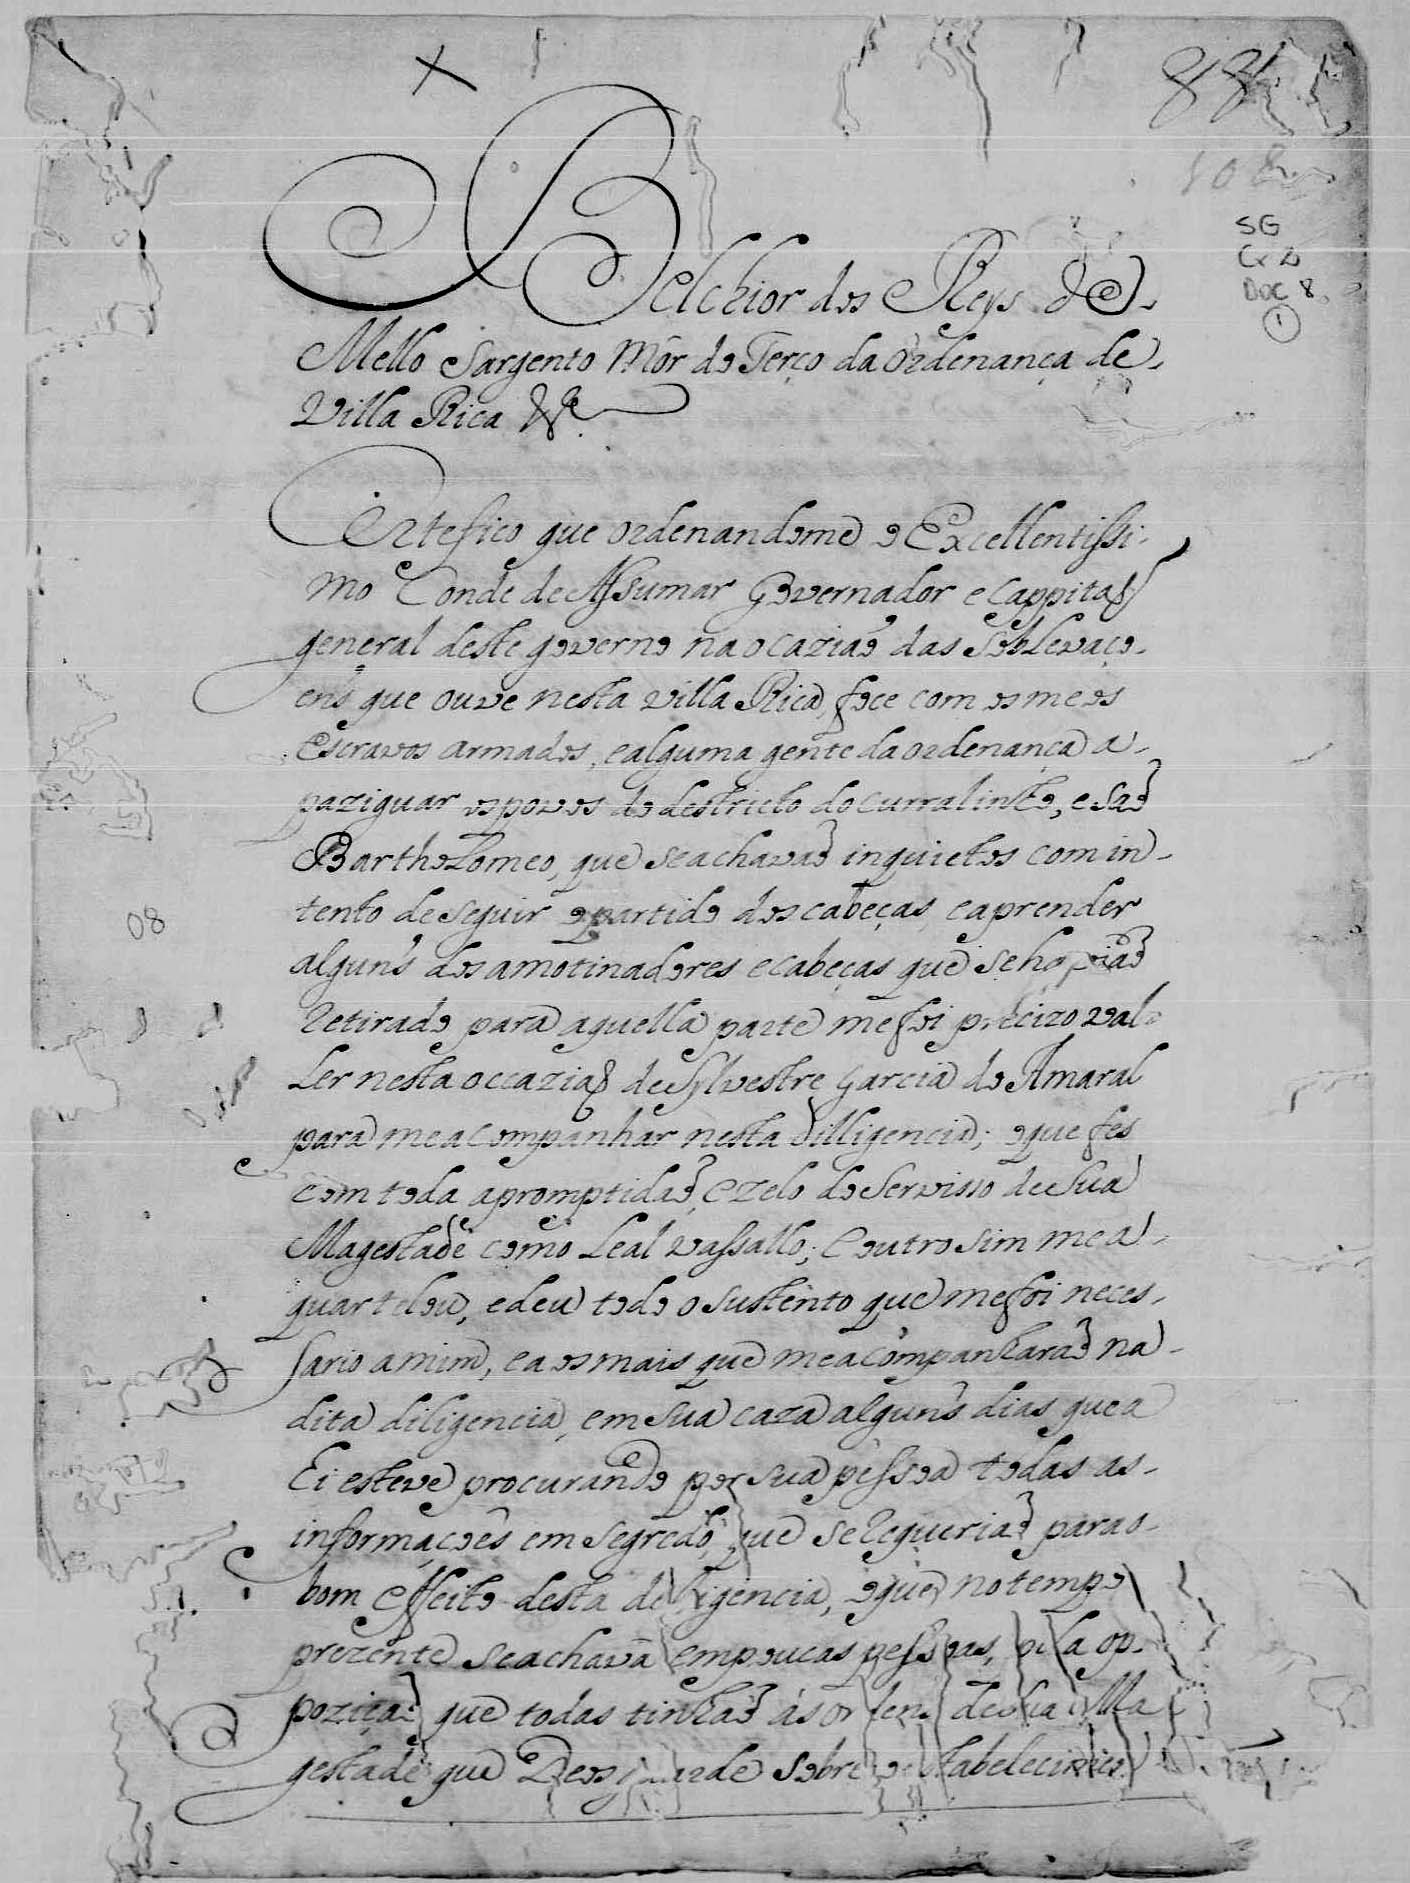 88
108
SG
Cx 2
Doc 8
1
Belchior dos Reys de
Mello Sargento Mór do Terço da ordenança de
Villa Rica &.
Certefico que ordenandome o Excellentissi-
mo Conde de Assumar Governador e Cappitaõ
general deste governo na ocaziaõ das Soblevaço-
ens que ouve nesta villa Rica, foce com os meos
Escravos armados, e alguma gente da ordenança a-
paziguar os povos do destricto do Curralinho, e saõ
Bartholomeo, que se achavaõ inquietos com in-
tento de seguir o partido dos cabeças, e aprender
alguns dos amotinadores e cabeças que se haviaõ
Retirado para aquella parte me foi precizo val-
Ler nesta occaziaõ de Sylvestre Garcia do Amaral
para me acompanhar nesta dilligencia; o que fes
com toda a promptidaõ, e zelo do Servisso de Sua
Magestade como Leal vassallo; e outro sim me a-
quartelou, e deu todo o sustento que me foi neces-
sario a mim, e a os mais que me acompanharaõ na-
dita diligencia, em sua caza alguns dias que a
Li esteve procurando por sua pessoa todas as-
informaçoẽs em segredo, que se Requeriaõ para o-
bom effeito desta deligencia, o que no tempo
prezente se achava em poucas pessoas, pela op-
poziçaõ que todas tinhaõ ás ordens de sua Ma
gestade que Deos guarde sobre o estabelecimto
08